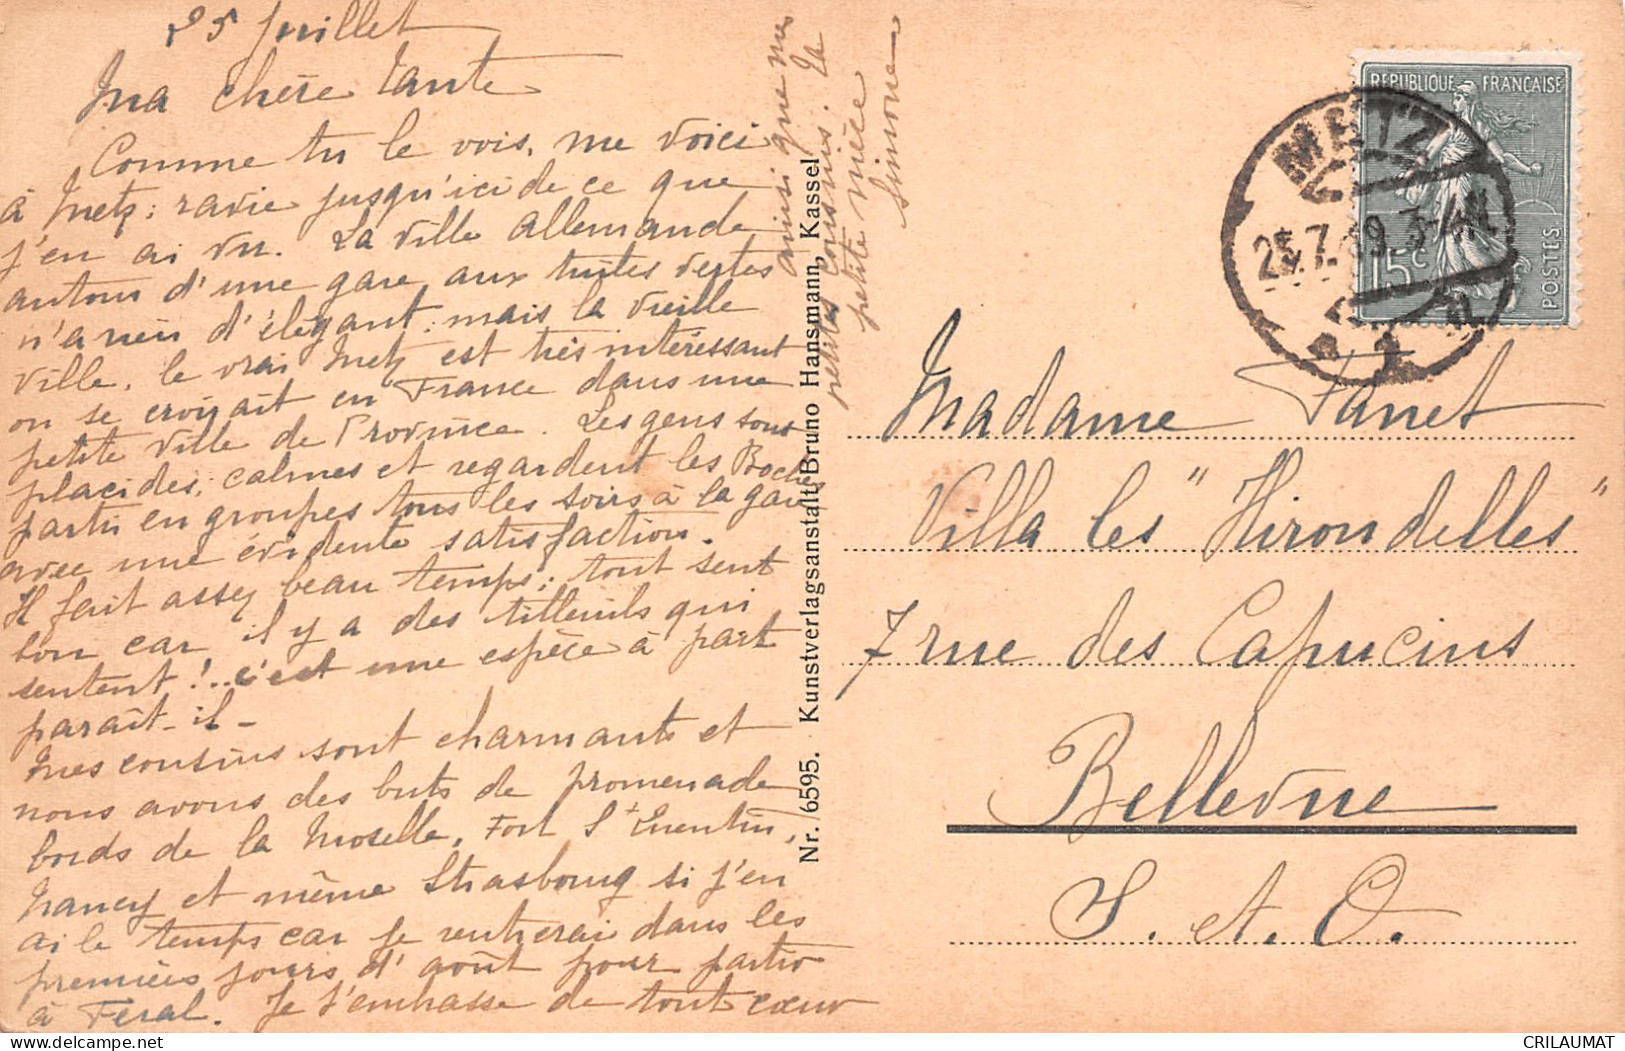 25 Juillet
Ma chère Tante
Comme tu le vois, me voici
à Metz; ravie jusqu'ici de ce que
j'en ai vu. La ville allemande
autour d'une gare aux tuiles vertes
n'a rien d'élégant; mais la vieille
ville, le vrai Metz est très intéressant
on se croirait en France dans une
petite ville de Province. Les gens sont
placides, calmes et regardent les Boches
partir en groupes tous les soirs à la gare
avec une évidente satisfaction.
Il fait assez beau temps; tout sent
bon car il y a des tilleuls qui
sentent !... c'est une espèce à part
paraît-il-
Mes cousins sont charmants et
nous avons des buts de promenade
bords de la Moselle, Fort St Quentin,
Nancy et même Strasbourg si j'en
ai le temps car je rentrerai dans les
premiers jours d'août pour partir
à Feral. Je t'embrasse de tout cœur
ainsi que mes
petites cousines. Ta
petite nièce
Simone
Nr. 6595. Kunstverlagsanstalt Bruno Hansmann, Kassel
REPUBLIQUE FRANÇAISE
15c
POSTES
METZ
25.7.19. 3-4N
Madame Fanet
Villa les "Hirondelles"
7 rue des Capucins
Bellevue
S. et. O.
CRILAUMAT